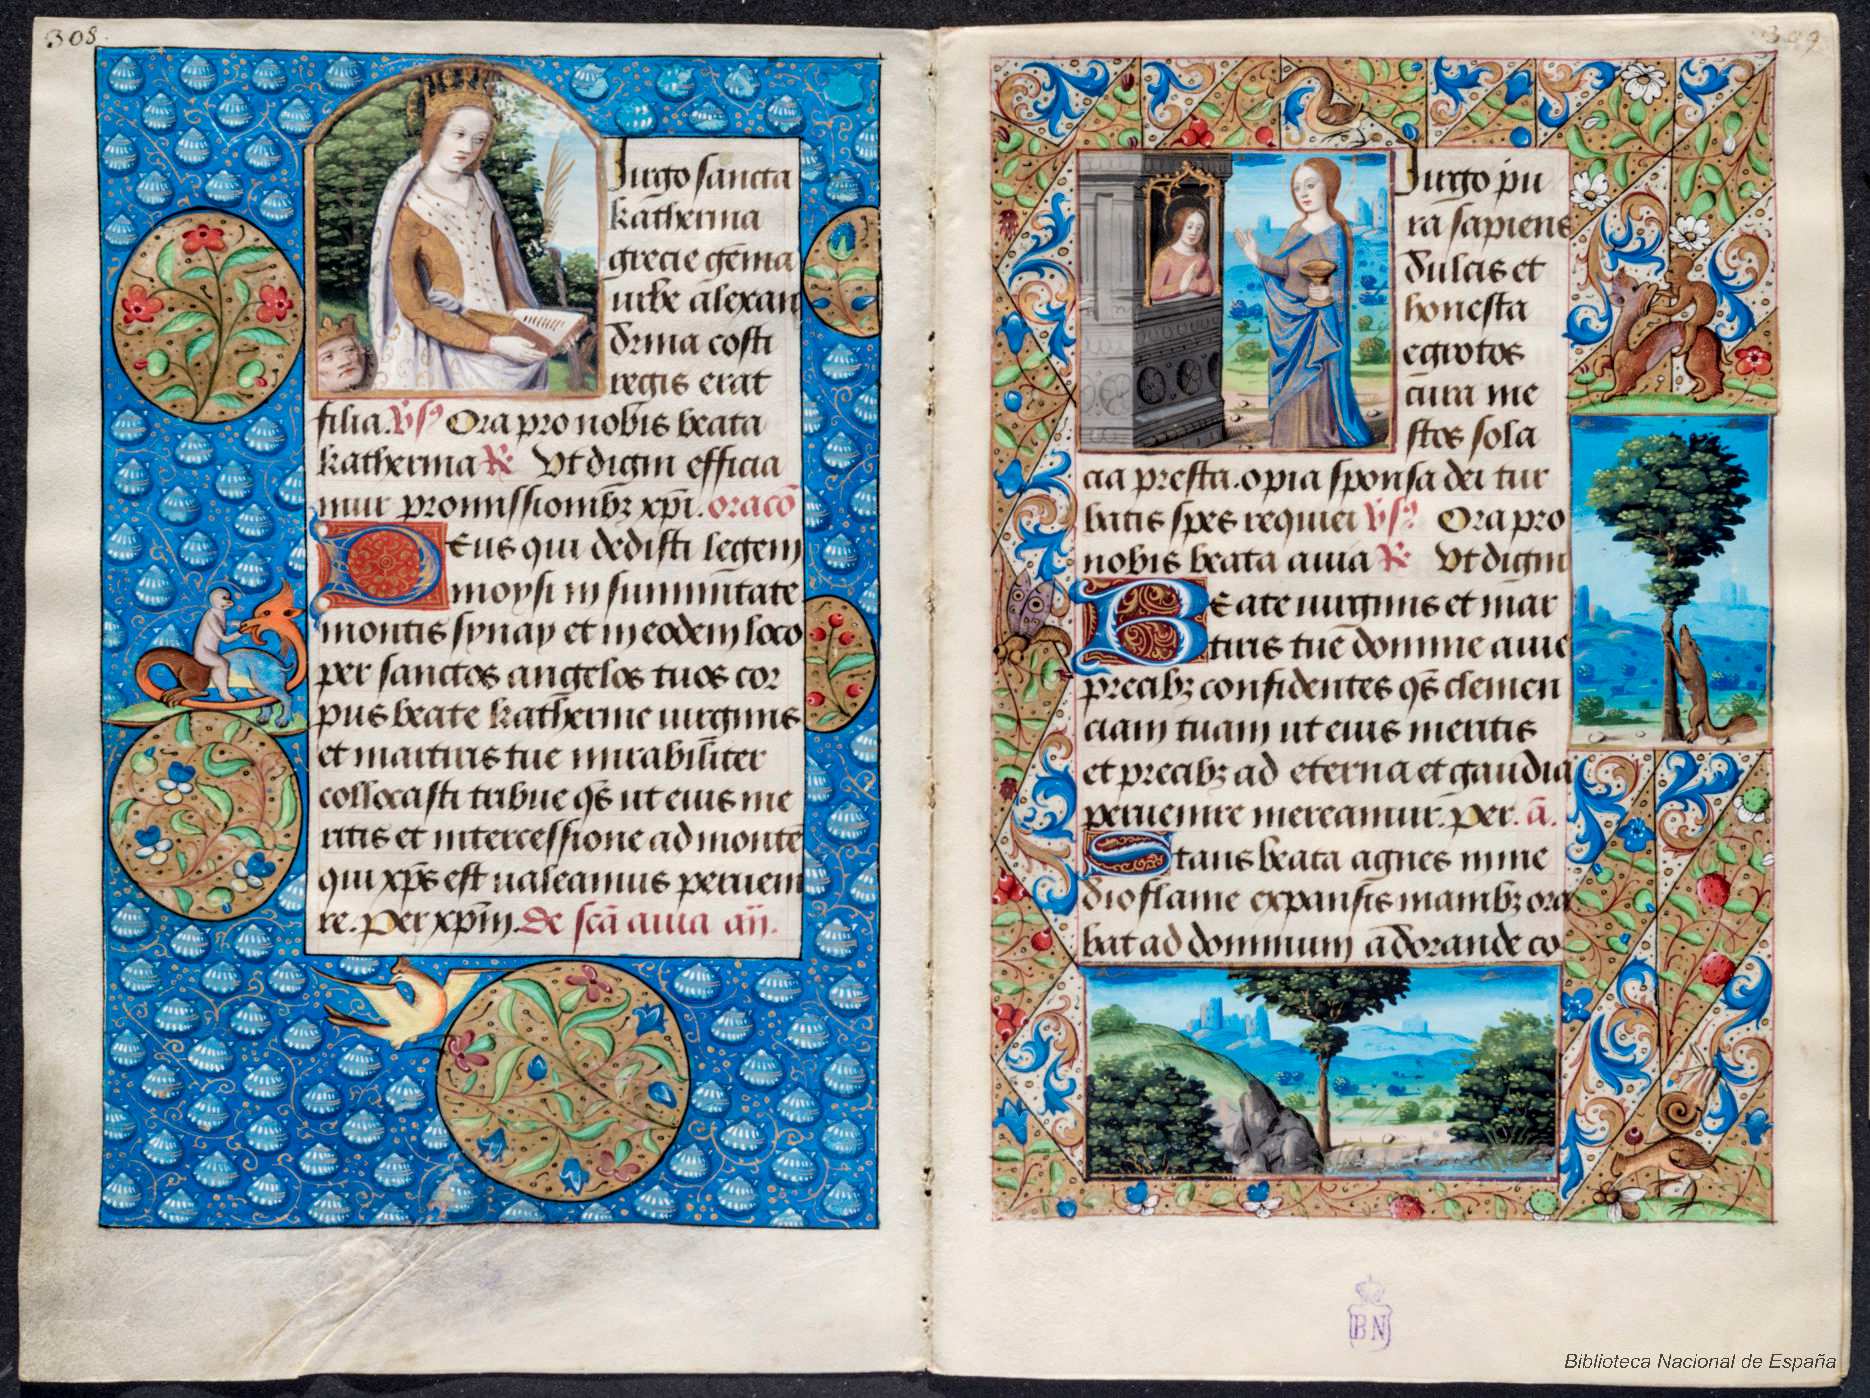 308.
Uirgo sancta
katherina
grecie gēma
urbe alexan
drina costi
regis erat
filia. Vsꝰ Ora pro nobis beata
katherina ℟ Vt digni efficia
mur promissionibꝫ xp̄i. oracō
Deus qui dedisti legem
moysi in summitate
montis synay et in eodem loco
per sanctos angelos tuos cor
pus beate katherine uirginis
et martiris tue mirabiliter
collocasti tribue qs̄ ut eius me
ritis et intercessione ad montē
qui xp̄s est ualeamus perueni
re. Per xp̄m. De scā auia añ.
309
Uirgo pu
ra sapiens
dulcis et
honesta
egrotos
cura me
stos sola
cia presta. o pia sponsa dei tur
batis spes requiei Vsꝰ Ora pro
nobis beata auia ℟ Vt digni
Beate uirginis et mar
tiris tue domine auie
precibꝫ confidentes qs̄ clemen
ciam tuam ut eius meritis
et precibꝫ ad eterna et gaudia
peruenire mereamur. Per. ā.
Stans beata agnes in me
dio flame expansis manibꝫ ora
bat ad dominum adorande co
BN
Biblioteca Nacional de España